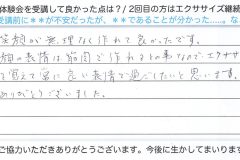 体験会を受講して良かった点は？/ 2回目の方はエクササイズ継続
受講前に＊＊が不安だったが、＊＊であることが分かった……な
笑顔が無理なく作れて良かったです。
顔の表情は筋肉で作れるとの事なので、エクササ
を覚えて常に良い表情で過ごしたいと思います。
ありがとうございました。
ご協力いただきありがとうございます。今後に生かしてまいります